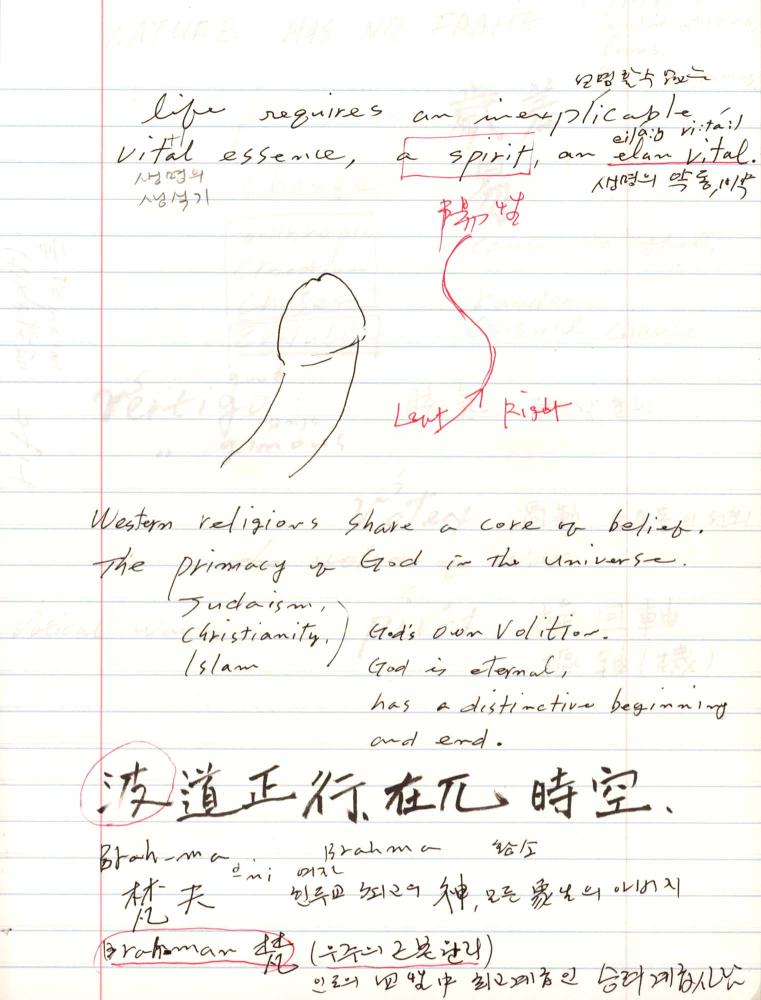 설명할 수 없는
life requires an inexplicable
eilá:ŋ vi:tá:l
vital essence, a spirit, an elan vital.
생명의
생명의 약동, 비약
생석기
陽性
Left Right
Western religions share a core of belief.
The primacy of God in the universe.
Judaism,
Christianity, God's own Volition.
Islam God is eternal,
has a distinctive beginning
and end.
波道正行, 在 時空.
Brah-ma Brahma 男
梵夫 힌두교 최고의 神, 모든 衆生의 아버지
Brahman 梵 (우주의 근본원리)
인도의 四姓中 최고계층인 승려계층